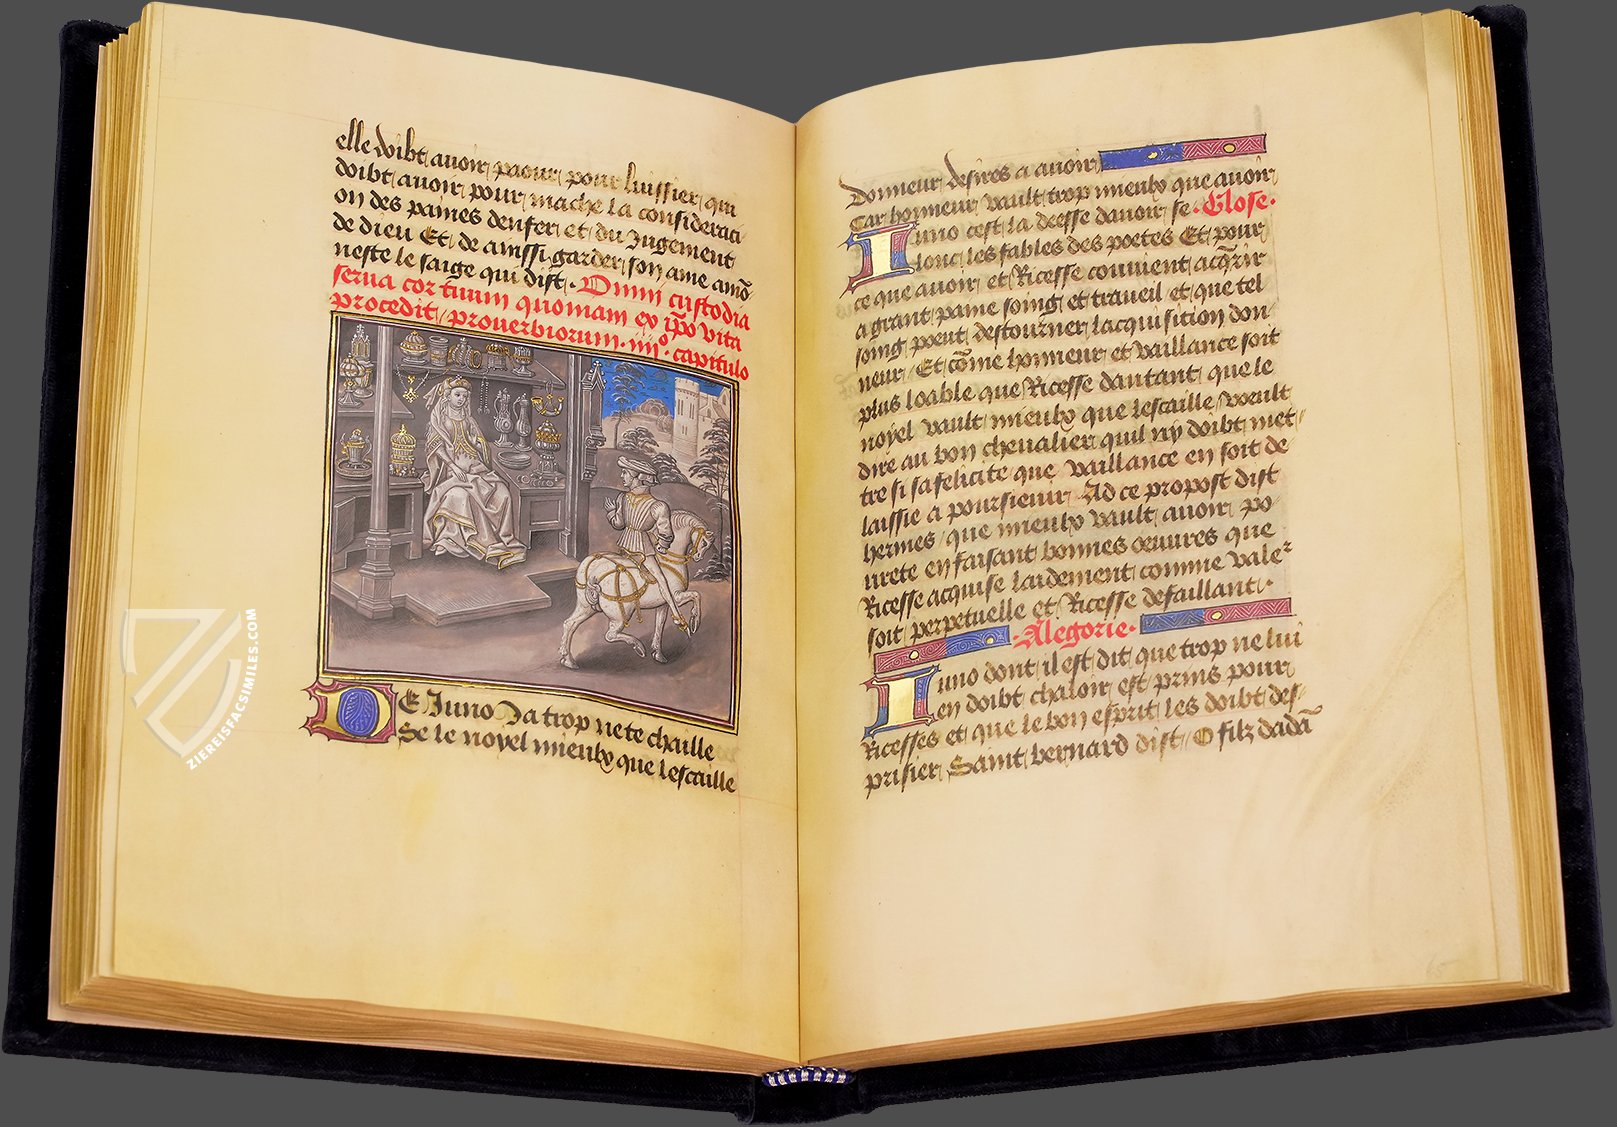 elle doibt avoir paour pour luissier qui
doibt avoir pour mache la consideraci
on des paines denfer et du Jugement
de dieu Et de ainssi garder son ame amō
neste le saige qui dist · Omni custodia
serva cor tuum quoniam ex ip̄o vita
procedit proverbiorum · iiijº · capitulo
DE Juno Ja trop ne te chaille
Se le noyel mieulx que lescaille
Donneur desires a avoir
Car honneur vault trop mieulx que avoir
Iuno cest la deesse davoir se · Glose ·
lonc les fables des poetes Et pour
ce que avoir et Ricesse convient acq̄rir
a grant paine soing et traveil et que tel
soing poeut destourner lacquisition don
neur Et cōme honneur et vaillance soit
plus loable que Ricesse dautant que le
noyel vault mieulx que lescaille voeult
dire au bon chevalier quil ny doibt met
tre si sa felicite que vaillance en soit de
laissie a poursievir Ad ce propost dist
hermes que mieulx vault avoir po
urete en faisant bonnes oeuvres que
Ricesse acquise laidement comme valer
soit perpetuelle et Ricesse defaillant ·
· Alegorie ·
Iuno dont il est dit que trop ne lui
en doibt chaloir est prins pour
Ricesses et que le bon esprit les doibt des
prisier Saint bernard dist O filz dadā
ZIEREISFACSIMILES.COM